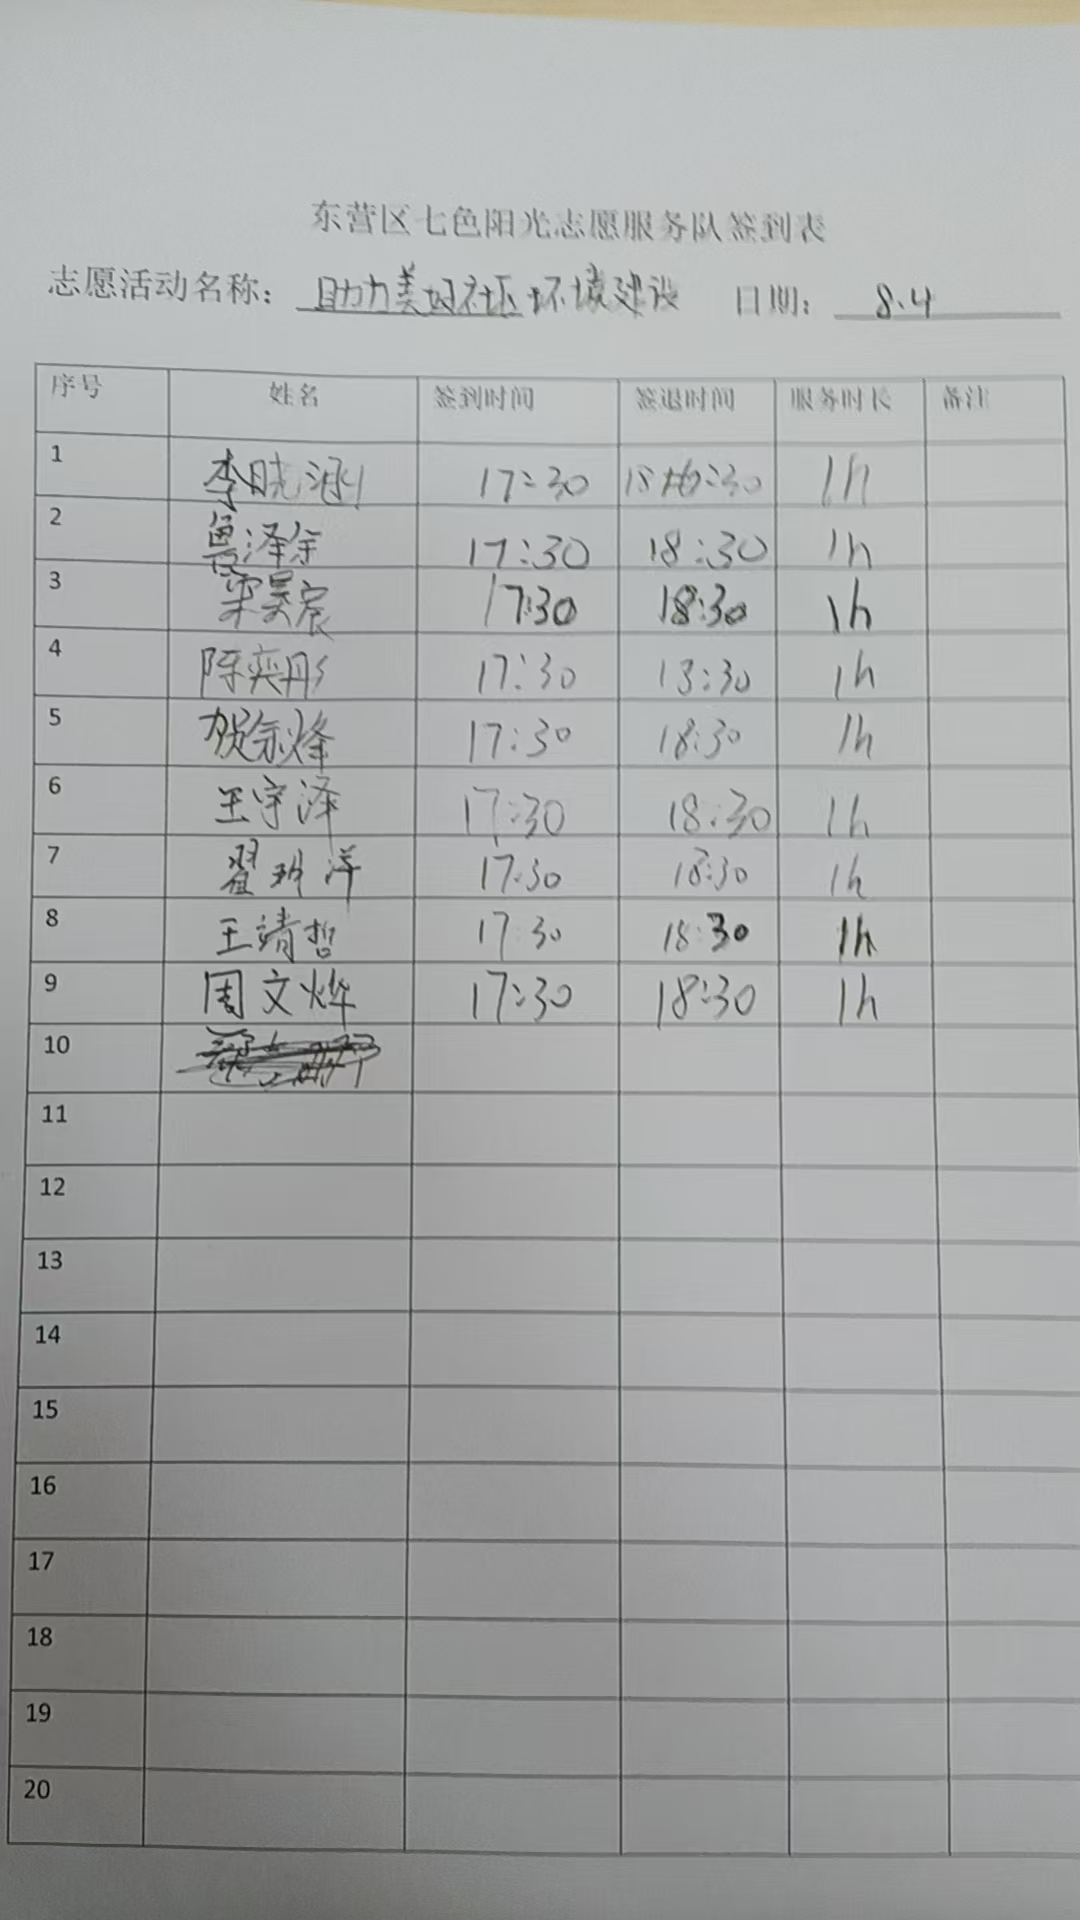 东营区七色阳光志愿服务队签到表
志愿活动名称： 助力美好社区环境建设 日期： 8.4
序号 姓名 签到时间 签退时间 服务时长 备注
1 李晓涵 17:30 18:30 1h
2 鲁泽余 17:30 18:30 1h
3 宋昊宸 17:30 18:30 1h
4 陈奕彤 17:30 18:30 1h
5 贺余烽 17:30 18:30 1h
6 王宇泽 17:30 18:30 1h
7 翟 洋 17:30 18:30 1h
8 王靖哲 17:30 18:30 1h
9 周文烨 17:30 18:30 1h
10
11
12
13
14
15
16
17
18
19
20